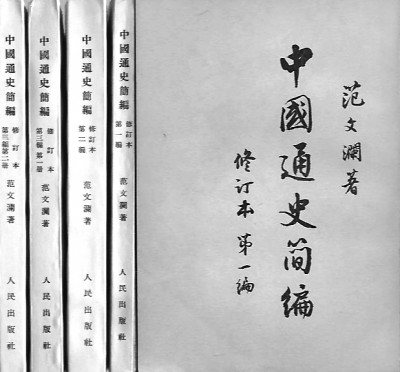 范文瀾著
中國通史简編
修订本 第一编
中國通史簡編
修訂本
第一編
范文瀾著
人民出版社
中國通史簡編
修訂本
第二編
范文瀾著
人民出版社
中國通史簡編
修訂本
第三編第一册
范文瀾著
人民出版社
中國通史簡編
修訂本
第三編第二册
范文瀾著
人民出版社